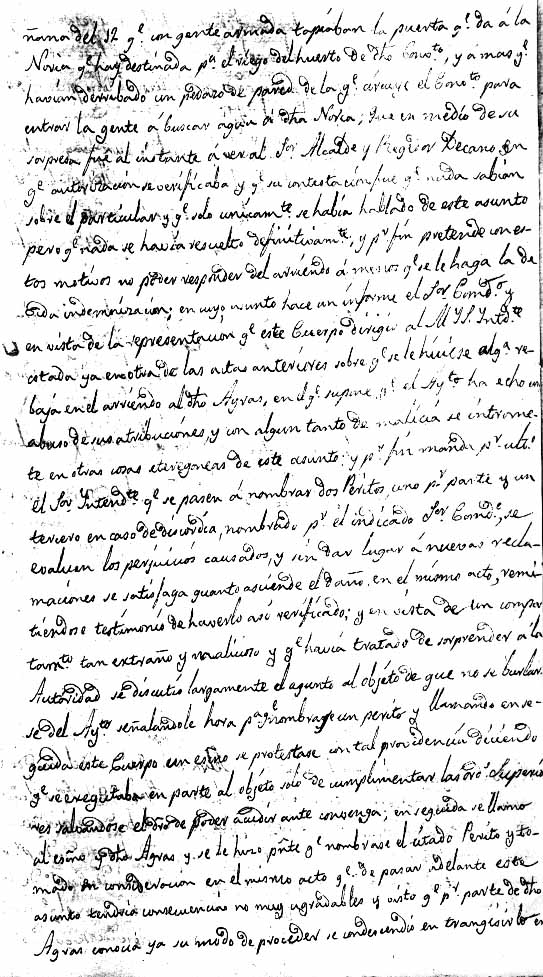 ñana del 12 qe. con gente armada tapiaban la puerta qe. da á la
Noria qe. hay destinada pa. el riego del huerto de dho Convto., y á mas qe.
havian derribado un pedazo de pared de la qe. circuye el Convto. para
entrar la gente á buscar agua á dha Noria; que en medio de su
sorpresa fué al instante á ver al Sor. Alcalde y Regidor Decano, en
qe. autorización se verificaba y qe. su contestación fue qe. nada sabian
sobre el particular y qe. solo unicamte. se habia hablado de este asunto
pero qe. nada se havia resuelto definitivamte., y pr. fin pretende con es-
tos motivos no poder responder del arriendo á menos qe. se le haga la de
bida indemnización; en cuyo asunto hace un informe el Sor. Comdo. y
en vista de la representación qe. este Cuerpo dirigió al M. Y. S. Intdte.
citada ya en otra de las actas anteriores sobre qe. se le hiciese alga. re-
baja en el arriendo al dho Agras, en el qe. supone qe. el Ayto. ha echo un
abuso de sus atribuciones, y con algun tanto de malicia se introme-
te en otras cosas eterogoneas de este asunto; y pr. fin manda pr. ulto.
el Sor. Intendte. qe. se pasen á nombrar dos Peritos, uno pr. parte y un
tercero en caso de discordia, nombrado pr. el indicado Sor. Comdo., se
evaluen los perjuicios causados, y sin dar lugar á nuevas recla-
maciones se satisfaga quanto asciende el daño en el mismo acto, remi-
tiendose testimonio de haverlo asi verificado; y en vista de un compor
tamto. tan extraño y malicioso y qe. havia tratado de sorprender á la
Autoridad se discutió largamente el asunto al objeto de que no se burlar.
se del Ayto. señalandole hora pa. qe. nombrase un perito y llamando en se-
guida este Cuerpo un esno. se protestase con tal providencia diciendo
qe. se exegutaba en parte al objeto solo de cumplimentar las orns. Superio
res salvandose el dro de poder acudir ante convenga; en seguida se llamo
al esno. y dho Agras y se le hizo pnte qe. nombrase el citado Perito y to-
mada en consideración en el mismo acto qe. de pasar adelante este
asunto tendria consecuencias no muy agradables y visto qe. pr. parte de dho
Agras conocia ya su modo de proceder se condescendió en trangisirlo en